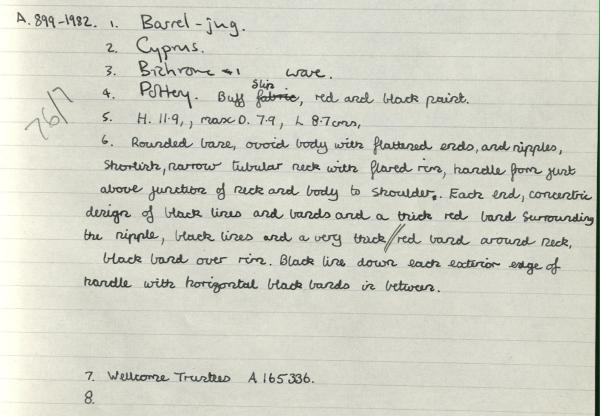 A.899-1982. 1. Barrel-jug.
2. Cyprus.
3. Bichrome ware.
4. Pottery. Buff slip fabric, red and black paint.
5. H. 11.9, , max D. 7.9, L 8.7cms,
76/7
6. Rounded base, ovoid body with flattened ends, and nipples,
shortish, narrow tubular neck with flared rim, handle from just
above junction of neck and body to shoulder. Each end, concentric
design of black lines and bands and a thick red band surrounding
the nipple, black lines and a very thick // red band around neck,
black band over rim. Black line down each exterior edge of
handle with horizontal black bands in between.
7. Wellcome Trustees A165336.
8.